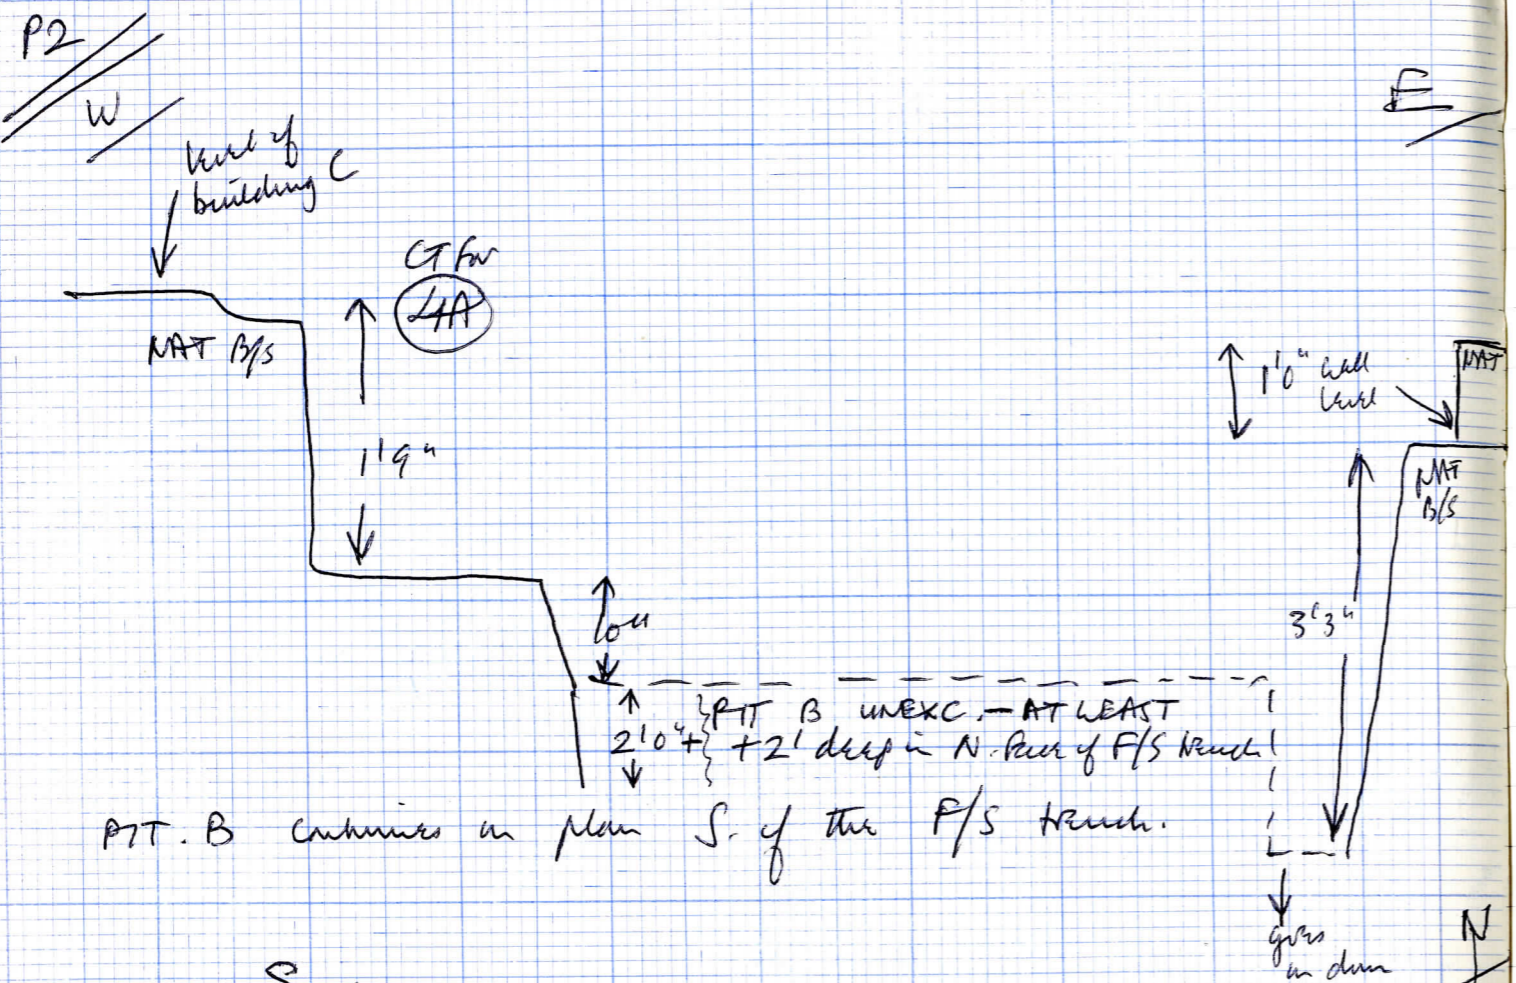 P2
W
E
level of
building C
CT for
4A
NAT B/S
1'0" wall
level
NAT
1'9"
NAT
B/S
10"
3'3"
PIT B UNEXC. - AT LEAST
2'0"+ +2' deep in N. face of F/S trench
PIT. B continues in plan S. of the F/S trench.
goes
on down
N
S